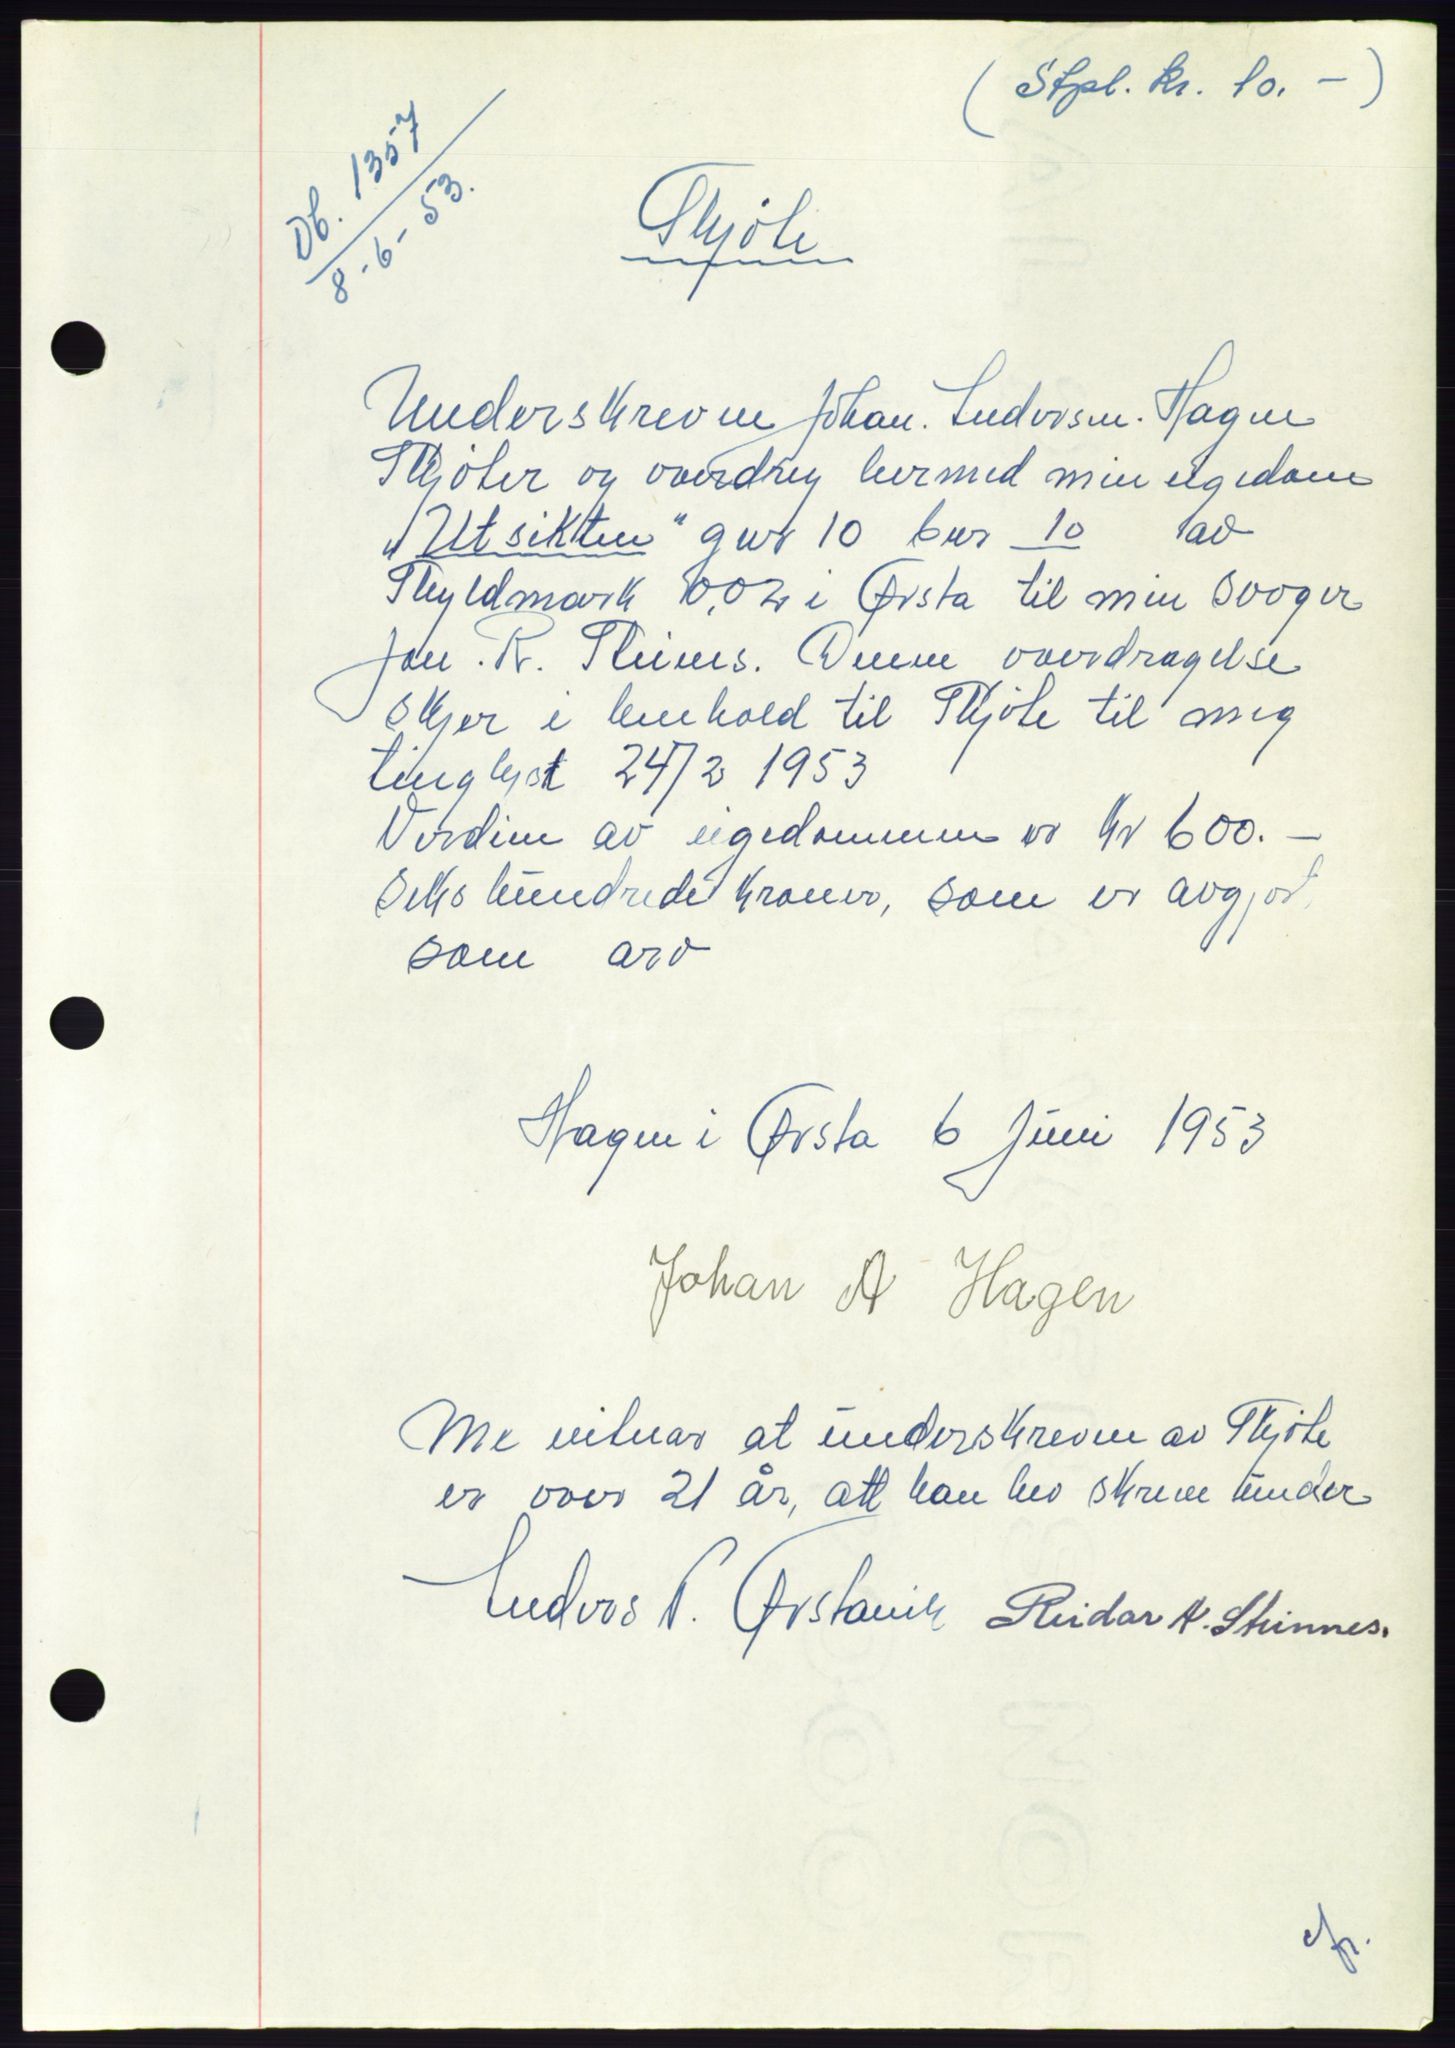 ( Stpl. kr. 10. - )
Db. 1357
8-6-53.
Skjöte
Underskreven Johan. Andersen. Hagen
Skjöter og overdreg hermed min eigedom
„Utsikten" gnr 10 bnr 10 av
Skyldmark 0,02 i Ørsta til min svoger
Jon. R. Steines. Denne overdragelse
skjer i henhold til Skjöte til meg
tinglyst 24/2 1953
Verdien av eigedommen er kr 600. -
seks hundrede kroner, som er avgjort
som arv
Hagen i Ørsta 6 Juni 1953
Johan A Hagen
Me vitnar at underskreven av Skjöte
er over 21 år, att han hev skreve under
Anders P. Ørstavik Reidar A. Steinnes.